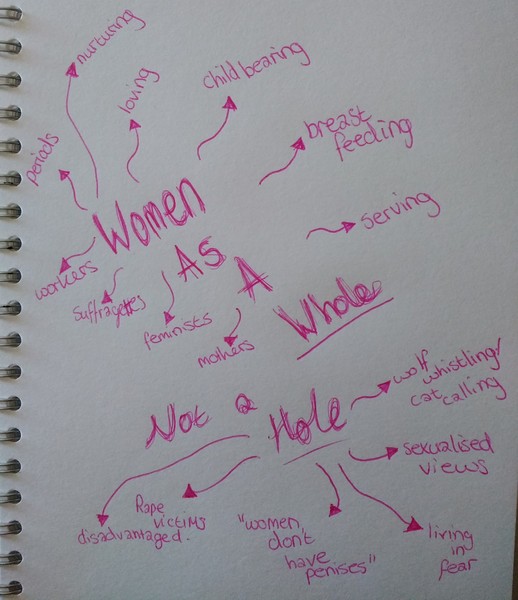 nurturing
loving
child bearing
periods
breast
feeding
serving
Women
As
A
Whole
workers
Suffragettes
feminists
mothers
Not a Hole
wolf
whistling/
cat calling
sexualised
views
living
in
fear
"women
don't
have
penises"
Rape
victims
disadvantaged.